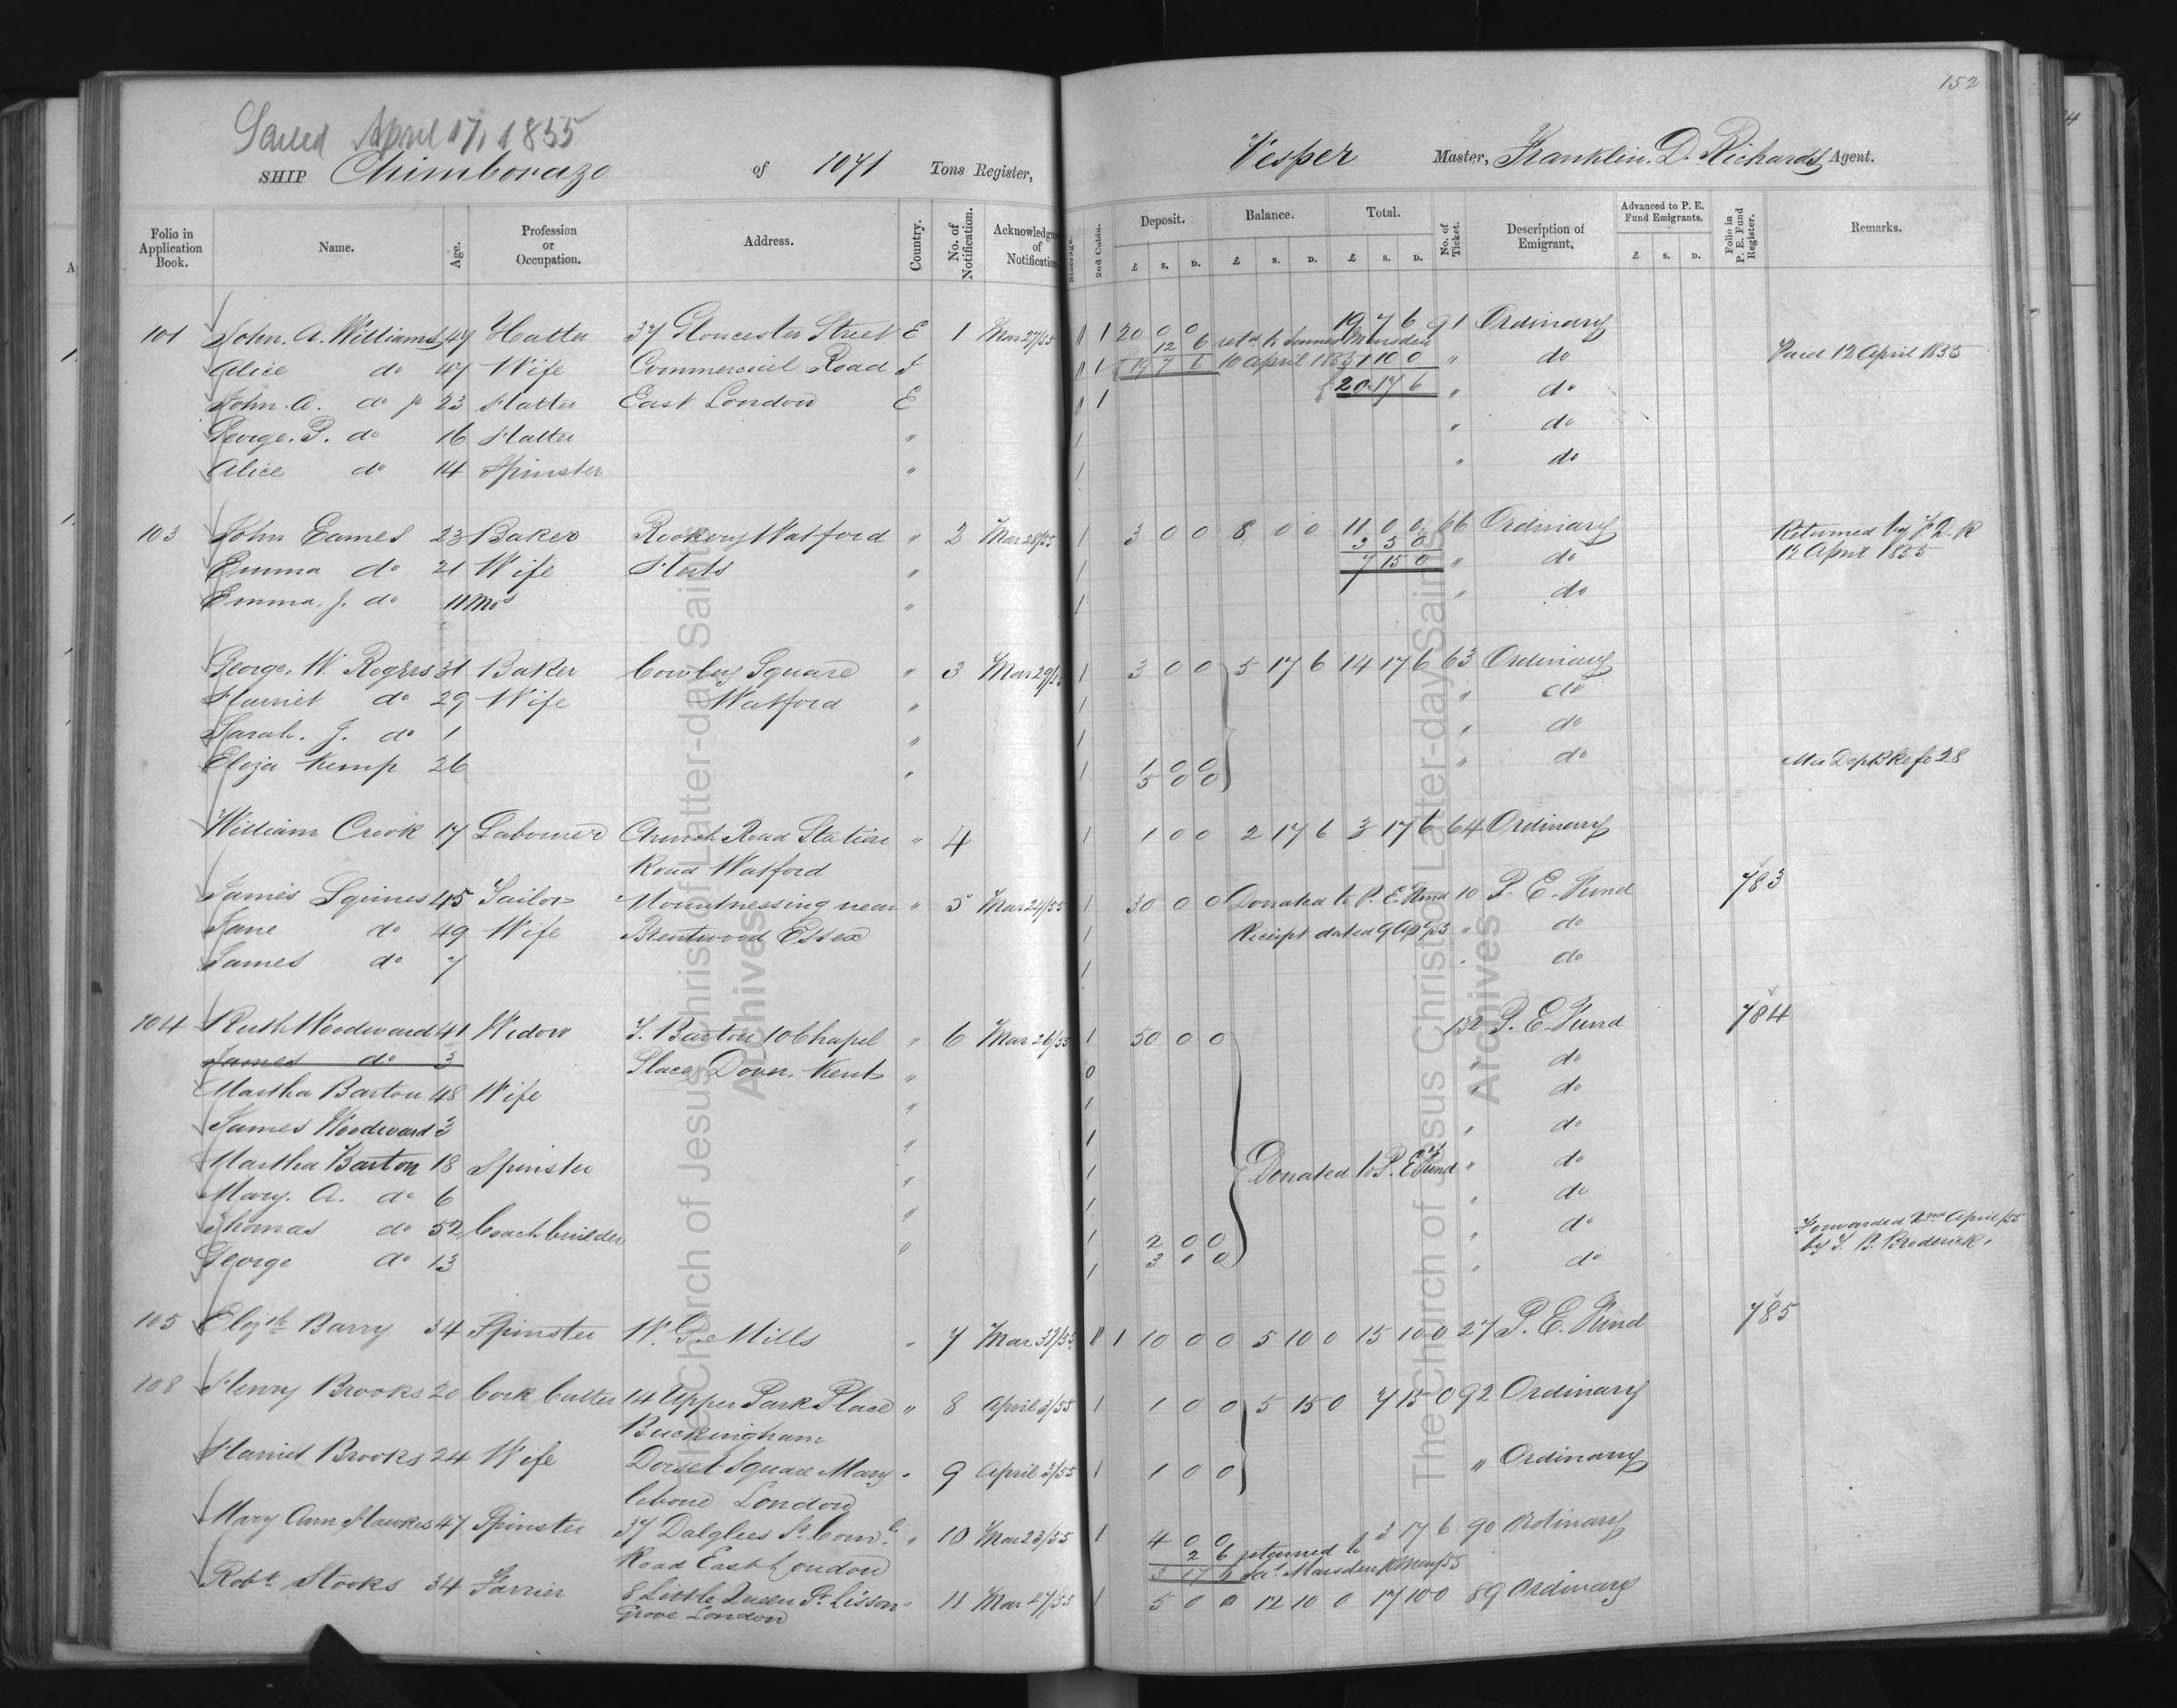 152
Sailed April 17, 1855
SHIP Chimborazo of 1071 Tons Register, Vesper Master, Franklin. D. Richards Agent.
Folio in Application Book. Name. Age. Profession or Occupation. Address. Country. No. of Notification. Acknowledgm of Notification Steerage. 2nd Cabin. Deposit. £ S. D. Balance. £ S. D. Total. £ S. D. No. of Ticket. Description of Emigrant. Advanced to P. E. Fund Emigrants. £ S. D. Folio in P. E. Fund Register. Remarks.
101 John. A. Williams 47 Hatter 37 Gloucester Street E 1 Mar 27/55 1 20 0 0 19 7 6 91 Ordinary
12 6 retd to James Marsden
Alice do 47 Wife Commercial Road 1 19 7 6 10 April 1855 1 10 0 " do Paid 12 April 1855
£20 17 6
John. A. do jr 23 Hatter East London E 1 " do
George. P. do 16 Hatter " 1 " do
Alice do 14 Spinster " 1 " do
103 John Eames 23 Baker Rookery Watford " 2 Mar 28/55 1 3 0 0 8 0 0 11 0 0 66 Ordinary Returned by F. D. R
3 5 0 12 April 1855
Emma do 21 Wife Herts " 1 7 15 0 " do
Emma. J. do 11 Mos " 1 " do
George. W. Rogers 31 Baker Cowley Square " 3 Mar 29/55 1 3 0 0 5 17 6 14 17 6 63 Ordinary
Harriet do 29 Wife Watford " 1 " do
Sarah. J. do 1 " 1 " do
Eliza Kemp 26 " 1 1 0 0 " do Mis Dep Bk fo 28
5 0 0
William Crook 17 Labourer Church Road Station " 4 1 1 0 0 2 17 6 3 17 6 64 Ordinary
Road Watford
James Squires 45 Sailor Mountnessing near " 5 Mar 24/55 1 30 0 0 Donated to P. E. Fund 10 P. E. Fund 783
Jane do 49 Wife Brentwood Essex 1 Receipt dated 9 Ap /53 " do
James do 7 1 " do
104 Ruth Woodward 41 Widow T. Barton 10 Chapel " 6 Mar 26/55 1 50 0 0 132 P. E. Fund 784
James do 3 Place Dover. Kent " 0 " do
Martha Barton 48 Wife " 1 " do
James Woodward 3 " 1 " do
Martha Barton 18 Spinster " 1 Donated to P. E. Fund " do
Mary. A. do 6 " 1 " do
Thomas do 52 Coach builder " 1 2 0 0 " do Forwarded 2nd April/55
George do 13 " 1 3 0 0 " do by T. B. Broderick.
105 Elizth Barry 34 Spinster W. G. Mills " 7 Mar 31/55 1 10 0 0 5 10 0 15 10 0 27 P. E. Fund 785
108 Henry Brooks 20 Cork Cutter 14 Upper Park Place " 8 April 3/55 1 1 0 0 5 15 0 7 15 0 92 Ordinary
Buckingham
Harriet Brooks 24 Wife Dorset Square Mary " 9 April 3/55 1 1 0 0 " Ordinary
lebone London
Mary Ann Hawkes 47 Spinster 37 Dalglees St. Coml " 10 Mar 23/55 1 4 0 0 3 17 6 90 Ordinary
2 6 returned to
Road East London 3 17 6 Jas Marsden May/55
Robt Stooks 34 Farrier 8 Little Queen St. Lisson " 11 Mar 27/55 1 5 0 0 12 10 0 17 10 0 89 Ordinary
Grove London
The Church of Jesus Christ of Latter-day Saints
Archives
The Church of Jesus Christ of Latter-day Saints
Archives